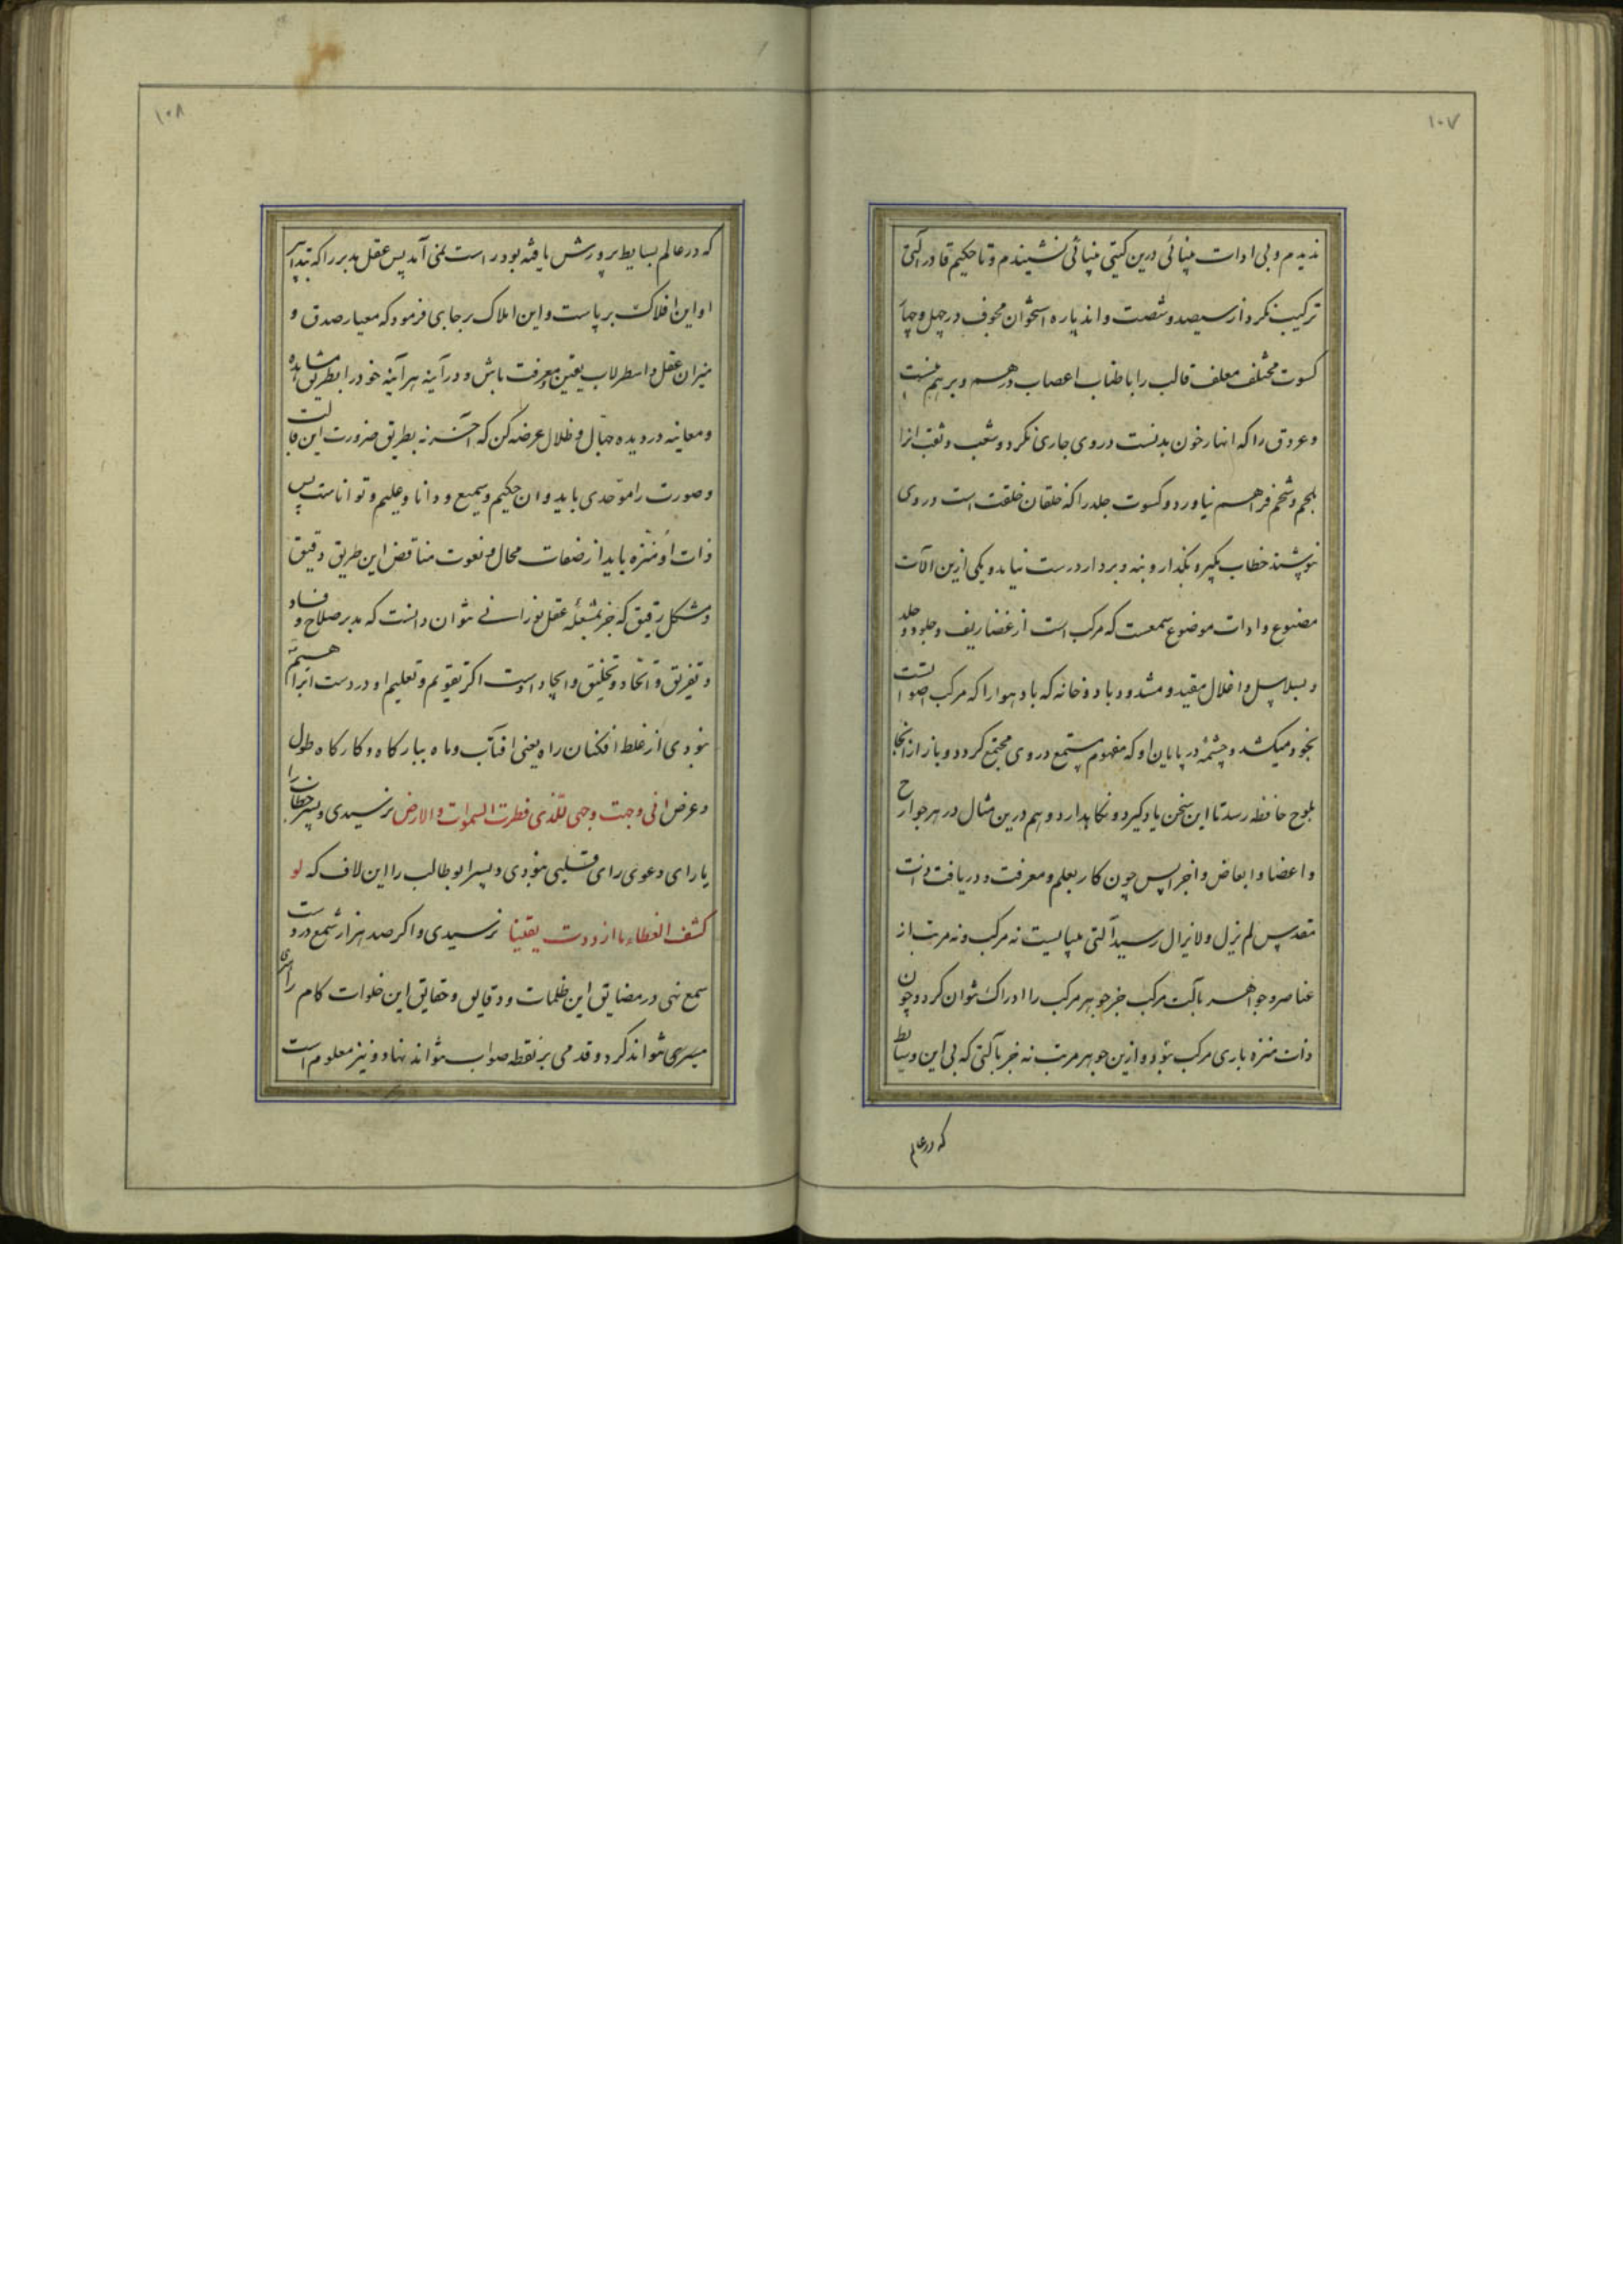 ۱۰۷
ندیدم و بی ادات بینائی درین گیتی بینائی نشنیدم و تا حکیم قادر آلتی
ترکیب نکرد از سیصد و شصت و اند پاره استخوان مجوف در چهل و چهار
کسوت مختلف معلف قالب را باطناب اعصاب درهم و برهم نبست
و عروق را که انهار خون بدنست در وی جاری نکرد و شعب و ثقب انرا
بلحم و شحم فراهم نیاورد و کسوت جلد را که خلقان خلقت است در وی
نپوشید خطاب بگیر و بگذار و بنه و بردار درست نیاید و یکی ازین الآت
مصنوع و ادات موضوع سمعست که مرکب است از غضاریف و جلود و جلد
و بسلاسل و اغلال مقید و مشدود بادوخانه که باد هوا را که مرکب اصواتست
بخود میکشد و چشمهٔ در پایان او که مفهوم مستمع در وی مجتمع گردد و باز از انجا
بلوح حافظه رسد تا این سخن یاد گیرد و نگاه دارد و هم درین مثال در هر جوارح
و اعضا و ابعاض و اجرا پس چون کار بعلم و معرفت و دریافت ذات
مقدس لم یزل و لایزال رسید آلتی میبایست نه مرکب و نه مرتب از
عناصر و جواهر بآلت مرکب جز جوهر مرکب را ادراک نتوان کرد و چون
ذات منزه باری مرکب نبود و ازین جوهر مرتب نه جز بآلتی که بی این وسایط
که در عالم
۱۰۸
که در عالم بسایط پرورش یافته بود راست نمی آمد پس عقل مدبر را که بتدابیر
او این افلاک بر پاست و این املاک بر جای فرمود که معیار صدق و
میزان عقل و اسطرلاب یقین و معرفت باش و در آینه هر آینه خود را بطریق مشاهده
و معاینه در دیده جهال و ظلال عرضه کن که آخر نه بطریق ضرورت این قالب
و صورت را موحدی باید و ان حکیم و سمیع و دانا و علیم و تواناست پس
ذات او منزه باید از صفات محال و نعوت مناقض این طریق دقیق
و مشکل رقیق که جز بشعلهٔ عقل نورانی نتوان دانست که مدبر صلاح و فساد
و تفریق و اتحاد و تخلیق و ایجاد اوست اگر تقویم و تعلیم او در دست ابراهیم
نبودی از غلط افکنان راه یعنی افتاب و ماه ببارگاه و کارگاه طول
و عرض انی وجهت وجهی للذی فطرت السموات و الارض نرسیدی و پسر خطاب را
یارای دعوی رای قلبی نبودی و پسر ابوطالب را این لاف که لو
کشف الغطاء ما ازددت یقینا نرسیدی و اگر صد هزار شمع در دست
سمع نهی در مضایق این ظلمات و دقایق و حقایق این خلوات کام را
میسری نتواند کرد و قدمی بر نقطه صواب نتواند نهاد و نیز معلوم است